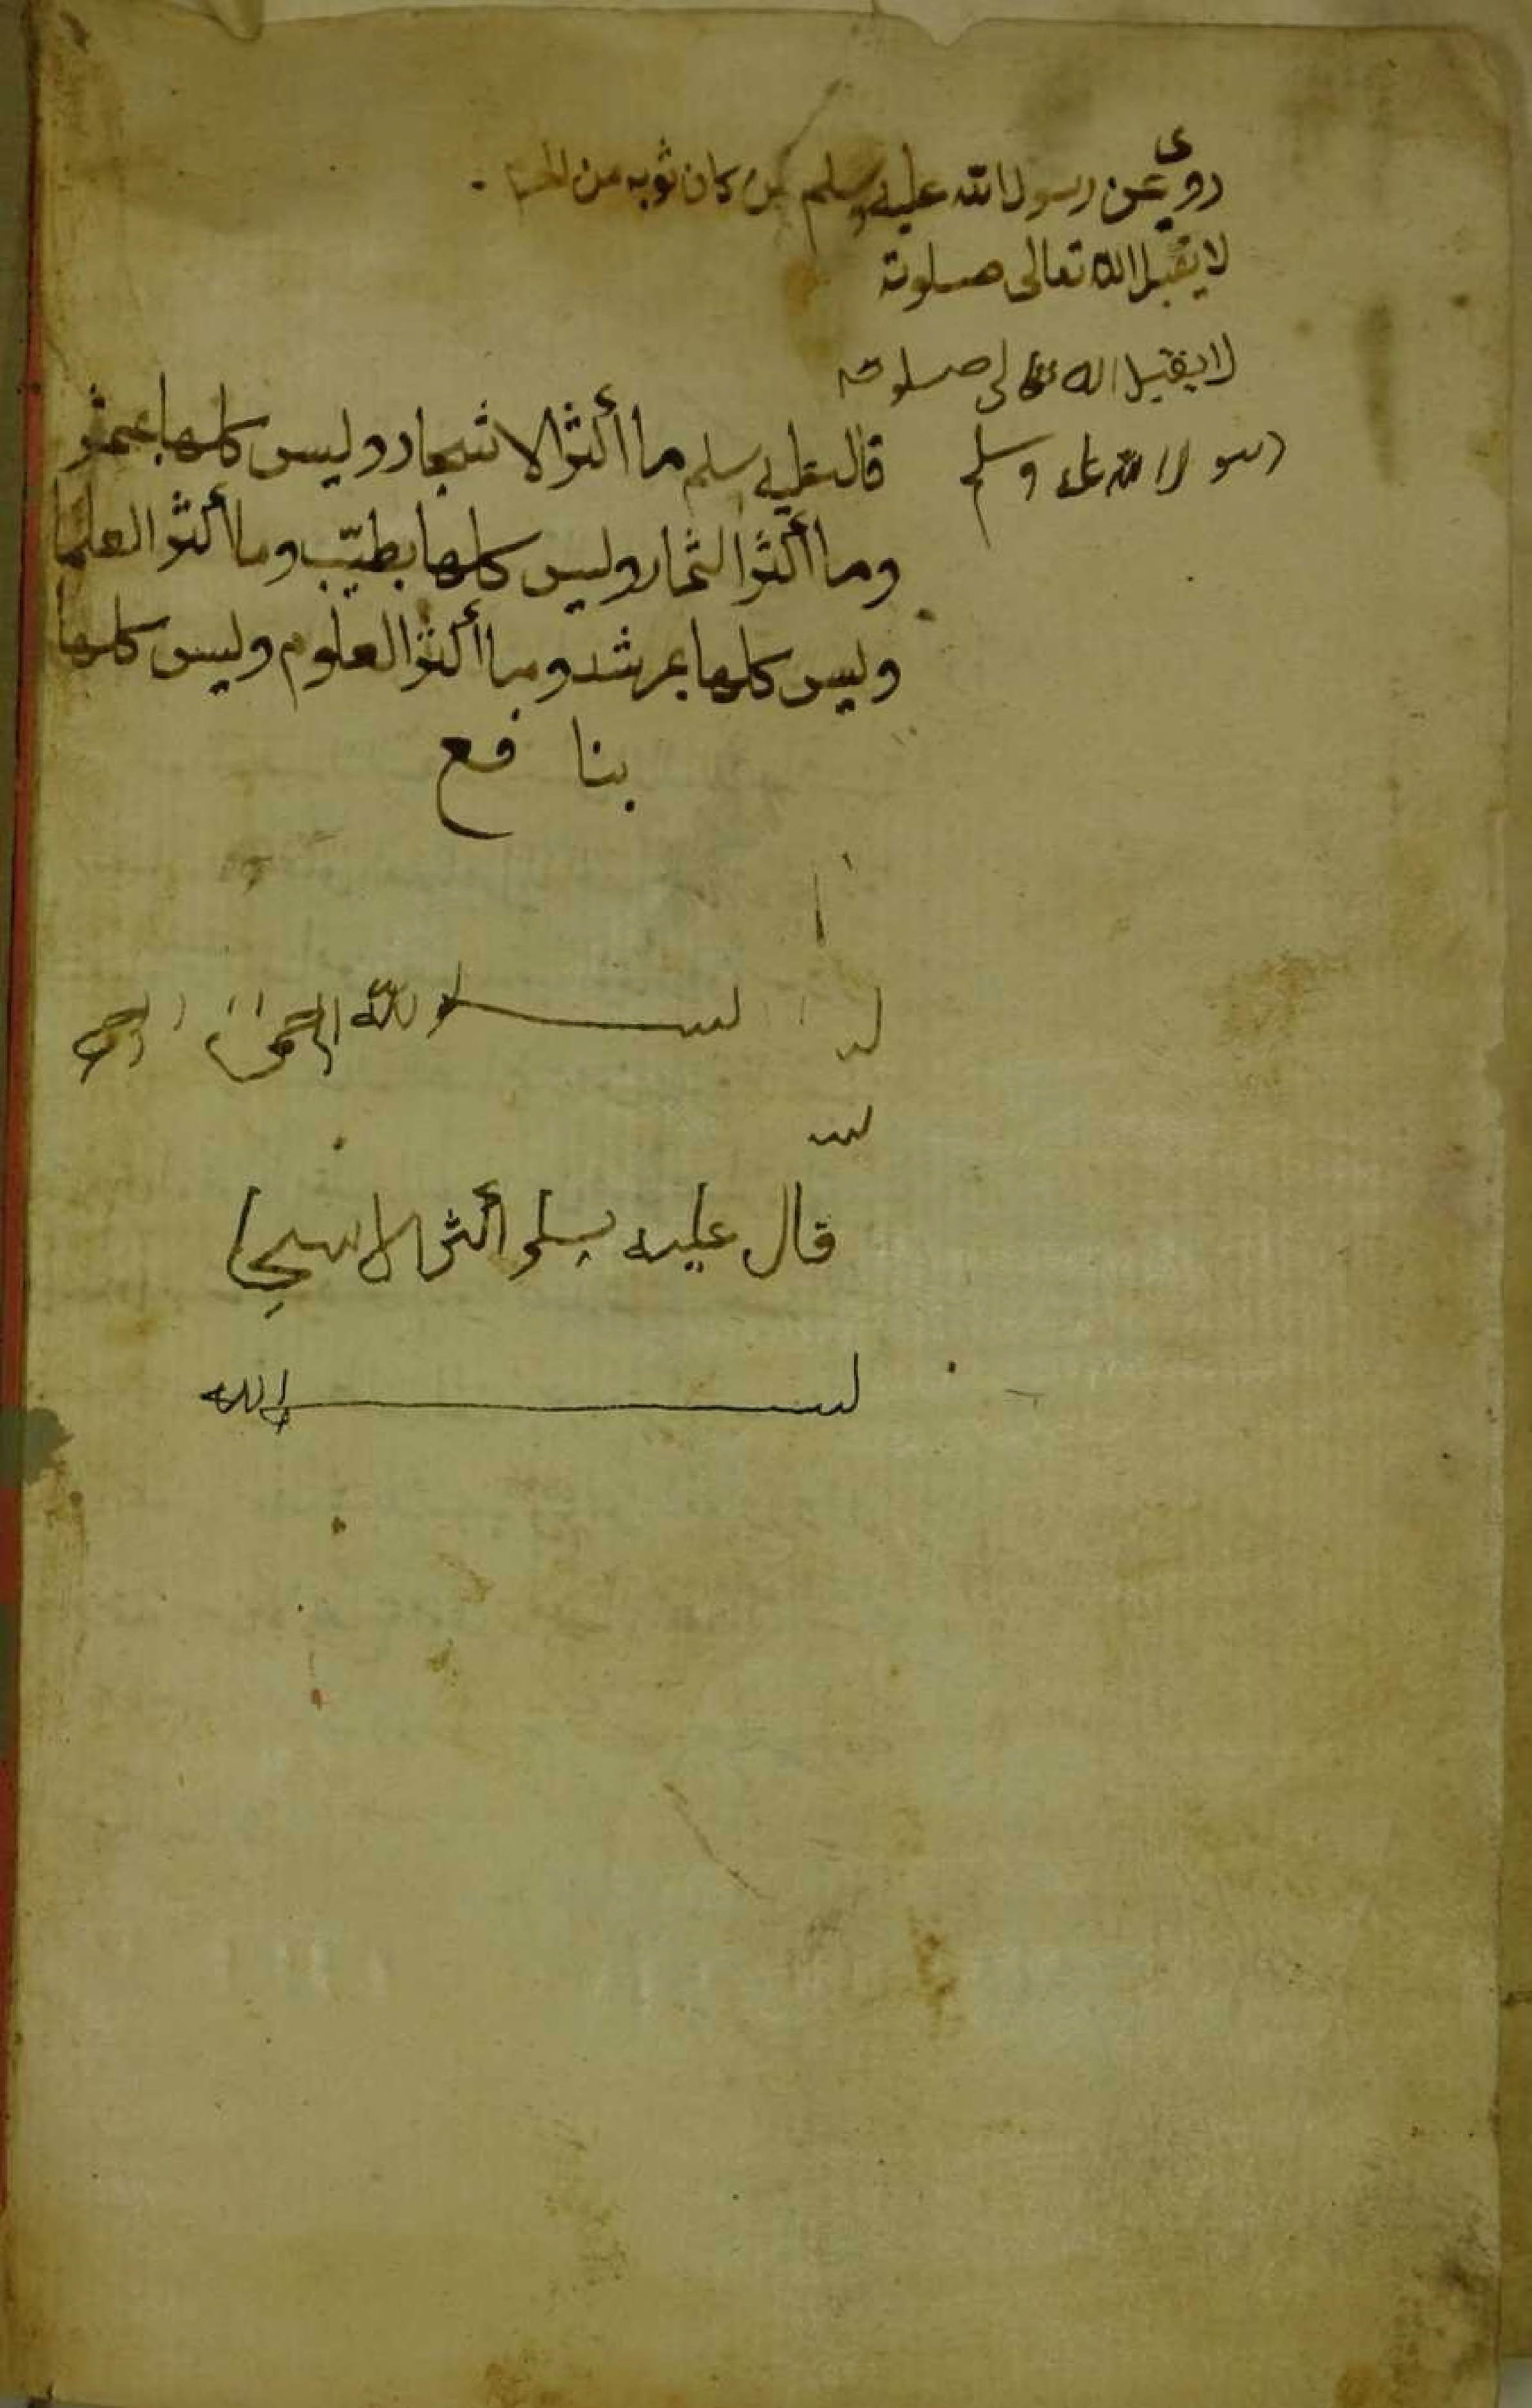 روى عن رسول الله عليه وسلم من كان ثوبه من
لا يقبل الله تعالى صلوته
لا يقبل الله تعالى صلوته
رسو لا الله عليه وسلم
قال عليه سلم ما أكثر الاشجار وليس كلها بمثمر
وما أكثر الثمار وليس كلها بطيّب وما أكثر العلما
وليس كلها بمرشد وما أكثر العلوم وليس كلها
بنا فع
بسم الله الرحمن الرحيم
قال عليه سلم أكثر الاسجا
بسم الله